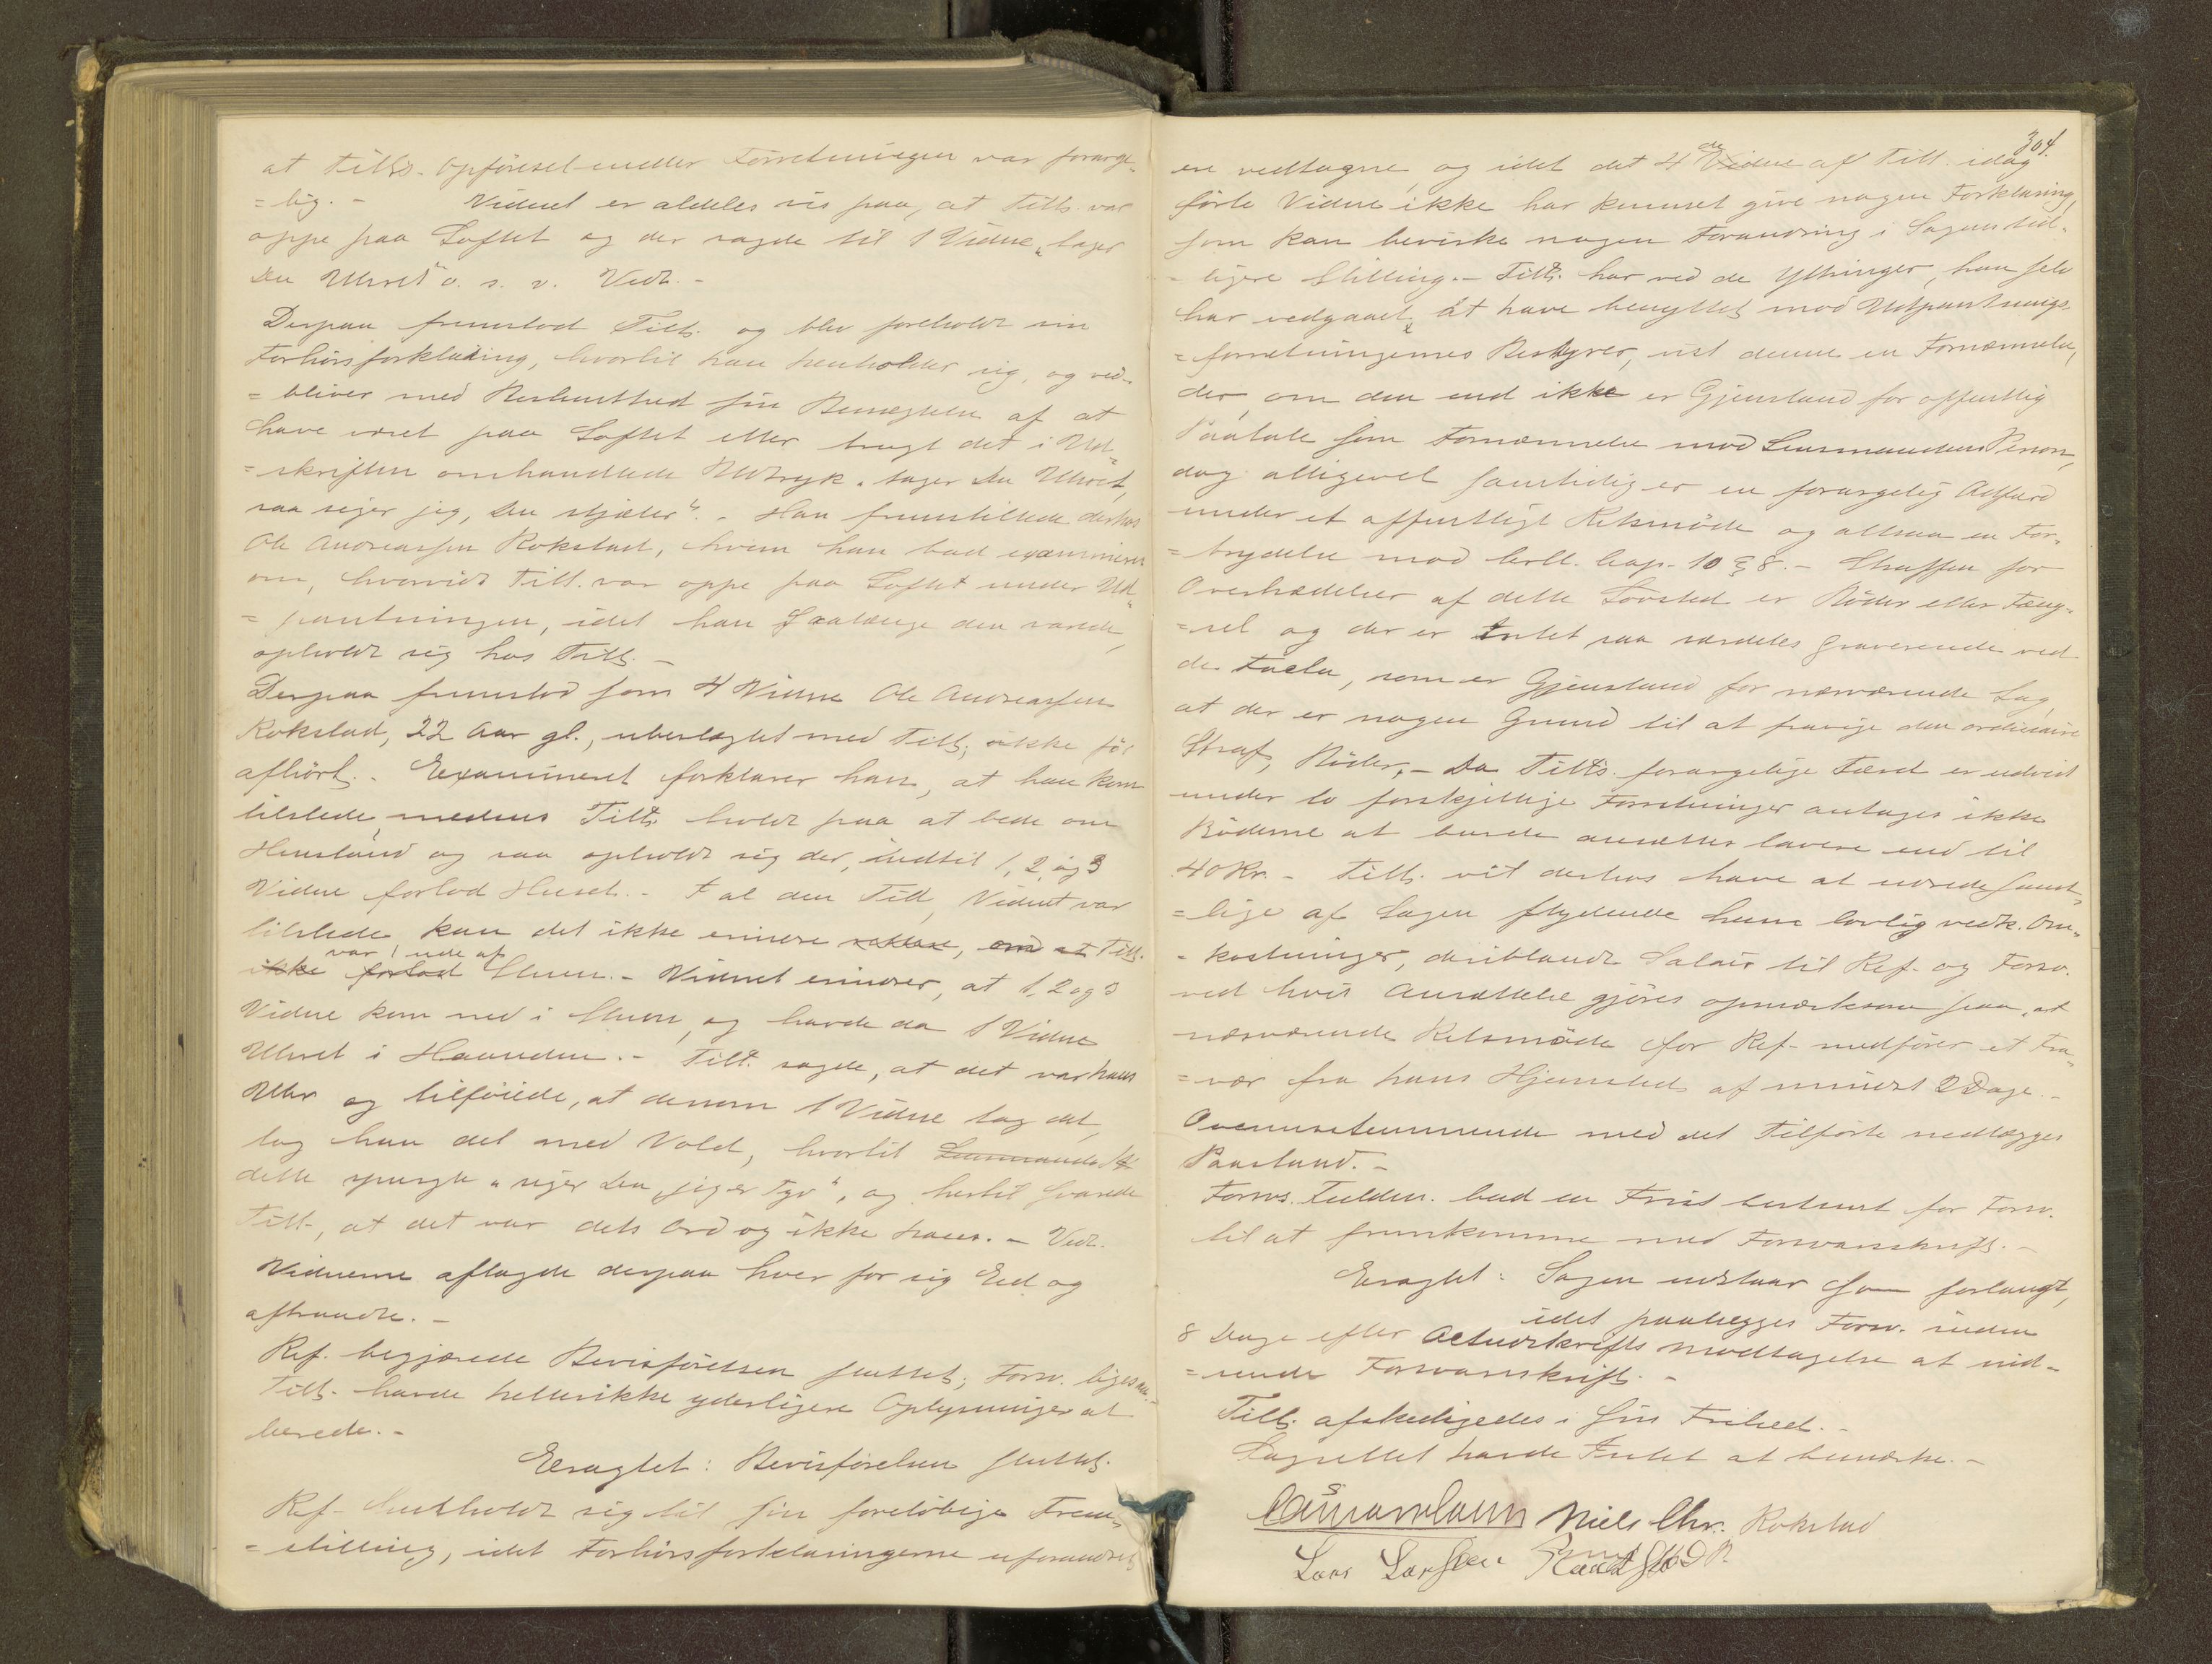 at Tilts. Opförsel under Forretningen var forarge-
=lig. - Vidnet er aldeles vis paa, at Tilts. var
oppe paa Loftet og der sagde til 1 Vidne "tager
Du Uhret" o. s. v. Vedt. -
Derpaa fremstod Tilts. og blev foreholdt sin
Forhörsforklaring, hvortil han henholder sig, og ved-
=bliver med Bestemthed sin Benægtelse af at
have været paa Loftet eller brugt det i Ud-
=skriften omhandlede Udtryk "tager Du Uhret,
saa siger jeg, Du stjæler". - Han fremstillede derhos
Ole Andreassen Rokstad, hvem han bad examineret
om, hvorvidt Tilt. var oppe paa Loftet under Ud-
=pantningen, idet han saalænge den varede,
opholdt sig hos Tilts. -
Derpaa fremstod som 4 Vidne Ole Andreassen
Rokstad, 22 Aar gl., ubeslægtet med Tilts., ikke för
afhört. - Examineret forklarer han, at han kom
tilstede, medens Tilts. holdt paa at bede om
Henstand og saa opholdt sig der, indtil 1, 2 og 3
Vidne forlod Huset. - I al den Tid, Vidnet var
tilstede kan det ikke erindre , om at Tilts.
var ude af
ikke forlod Stuen. - Vidnet erindrer, at 1, 2 og 3
Vidne kom ned i Stuen, og havde da 1 Vidne
Uhret i Haanden. - Tilt. sagde, at det var hans
Uhr og tilföiede, at dersom 1 Vidne tog det,
tog han det med Vold, hvortil Lensmanden
dette spurgte "siger Du, jeg er Tyv", og hertil svarede
Tilt., at det var dets Ord og ikke hans. - Vedt.
Vidnerne aflagde derpaa hver for sig Eed og
aftraadte. -
Ref. begjærede Bevisförelsen sluttet; Forsv. ligesaa. -
Tilts. havde hellerikke yderligere Oplysninger at
berede. -
Eragtet: Bevisförelsen sluttet.
Ref. henholdt sig til sin foreløbige Frem-
=stilling, idet Forhörsforklaringerne uforandret
304.
er vedtagne, og idet det 4de Vidne af Tilt. idag
förte Vidne ikke har kunnet give nogen Forklaring,
som kan bevirke nogen Forandring i Sagens tid-
=ligere Stilling. - Tilts. har ved de Yttringer, han selv
har vedgaaet at have benyttet mod Udpantnings-
=forretningernes Bestyrer, vist denne en Fornærmelse,
der, om den end ikke er Gjenstand for offentlig
Paatale som Fornærmelse mod Lensmandens Person,
dog alligevel samtidig er en forargelig Adfærd
under et offentligt Retsmöde og altsaa en For-
=brydelse mod krll. Cap. 10 § 8. - Straffen for
Overtrædelser af dette Lovsted er Böder eller Fæng-
=sel og der er Intet saa særdeles graverende ved
de Facta, som er Gjenstand for nærværende Sag,
at der er nogen Grund til at fravige den ordinaire
Straf, Böder. - Da Tilts. forargelige Færd er udvist
under to forskjellige Forretninger antages ikke
Böderne at burde ansættes lavere end til
40 Kr. - Tilts. vil derhos have at udrede samt-
=lige af Sagen flydende ham lovlig vedk. Om-
=kostninger, deriblandt Salair til Ref. og Forsv.
ved hvis Ansættelse gjöres opmærksom paa, at
nærværende Retsmöde for Ref. medförer et Fra-
=vær fra hans Hjemsted af mindst 2 Dage. -
Overensstemmende med det Tilförte nedlægges
Paastand. -
Forsv. Fuldm. bad en Frist bestemt for Forsv.
til at fremkomme med Forsvarsskrift. -
Eragtet: Sagen udstaar som forlangt,
idet paalægges Forsv. inden
8 Dage efter Actorskrifts Modtagelse at ind-
=sende Forsvarsskrift. -
Tilts. afskedigedes i sin Frihed. -
Lagrettet havde Intet at bemærke. -
Niels Chr. Rokstad
Lars Larssen